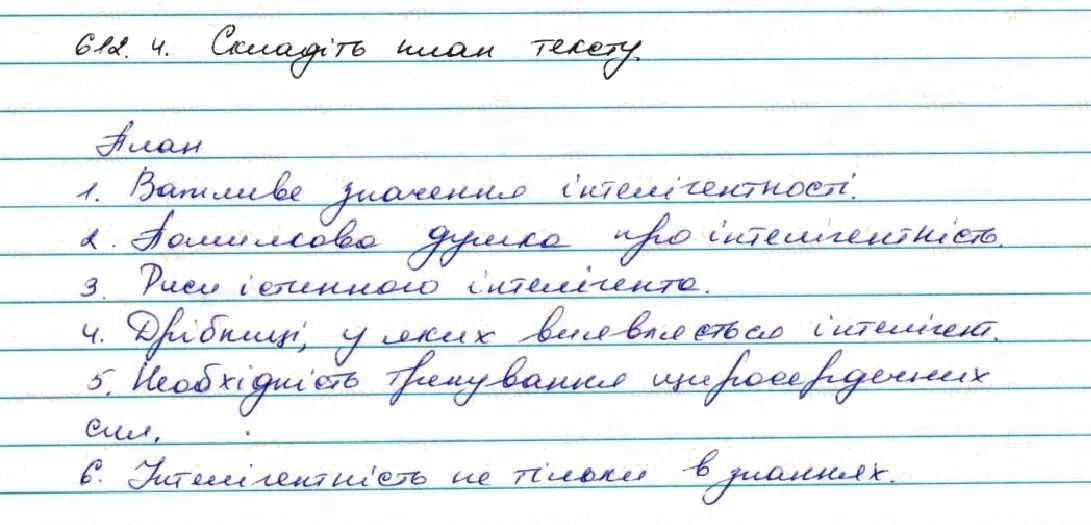 612. 4. Складіть план тексту.
План
1. Важливе значення інтелігентності.
2. Помилкова думка про інтелігентність.
3. Риси істинного інтелігента.
4. Дрібниці, у яких виявляється інтелігент.
5. Необхідність тренування щиросердечних
сил.
6. Інтелігентність не тільки в знаннях.